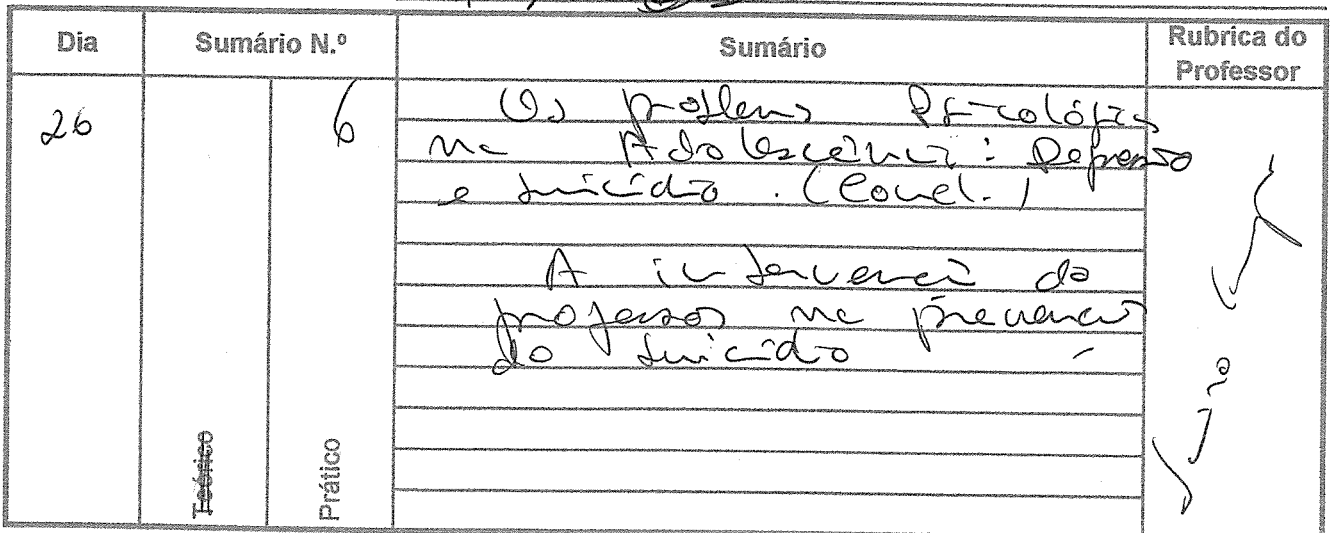 Dia Sumário N.º Sumário Rubrica do Professor
26 6 Os problemas Psicológicos
na Adolescência: Depressão
e suicídio. (Concl.)
A intervenção do
professor na prevenção
do suicídio
Teórico Prático